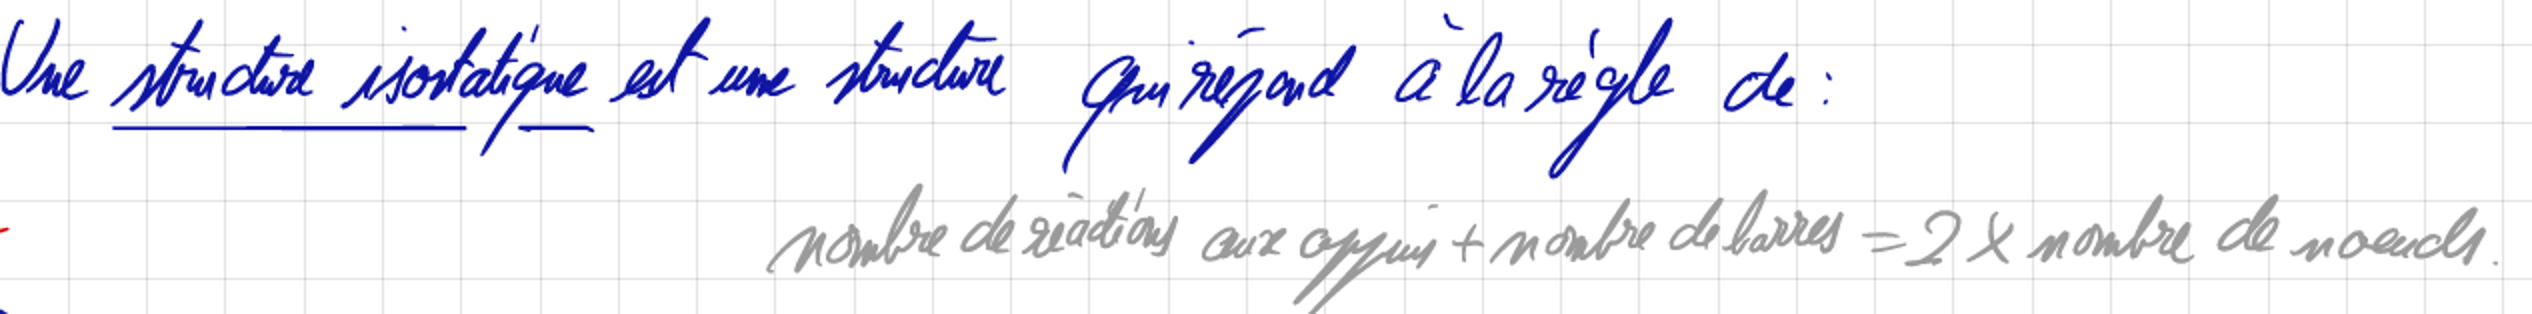 Une structure isostatique est une structure qui répond à la règle de :
nombre de réactions aux appuis + nombre de barres = 2 x nombre de noeuds.